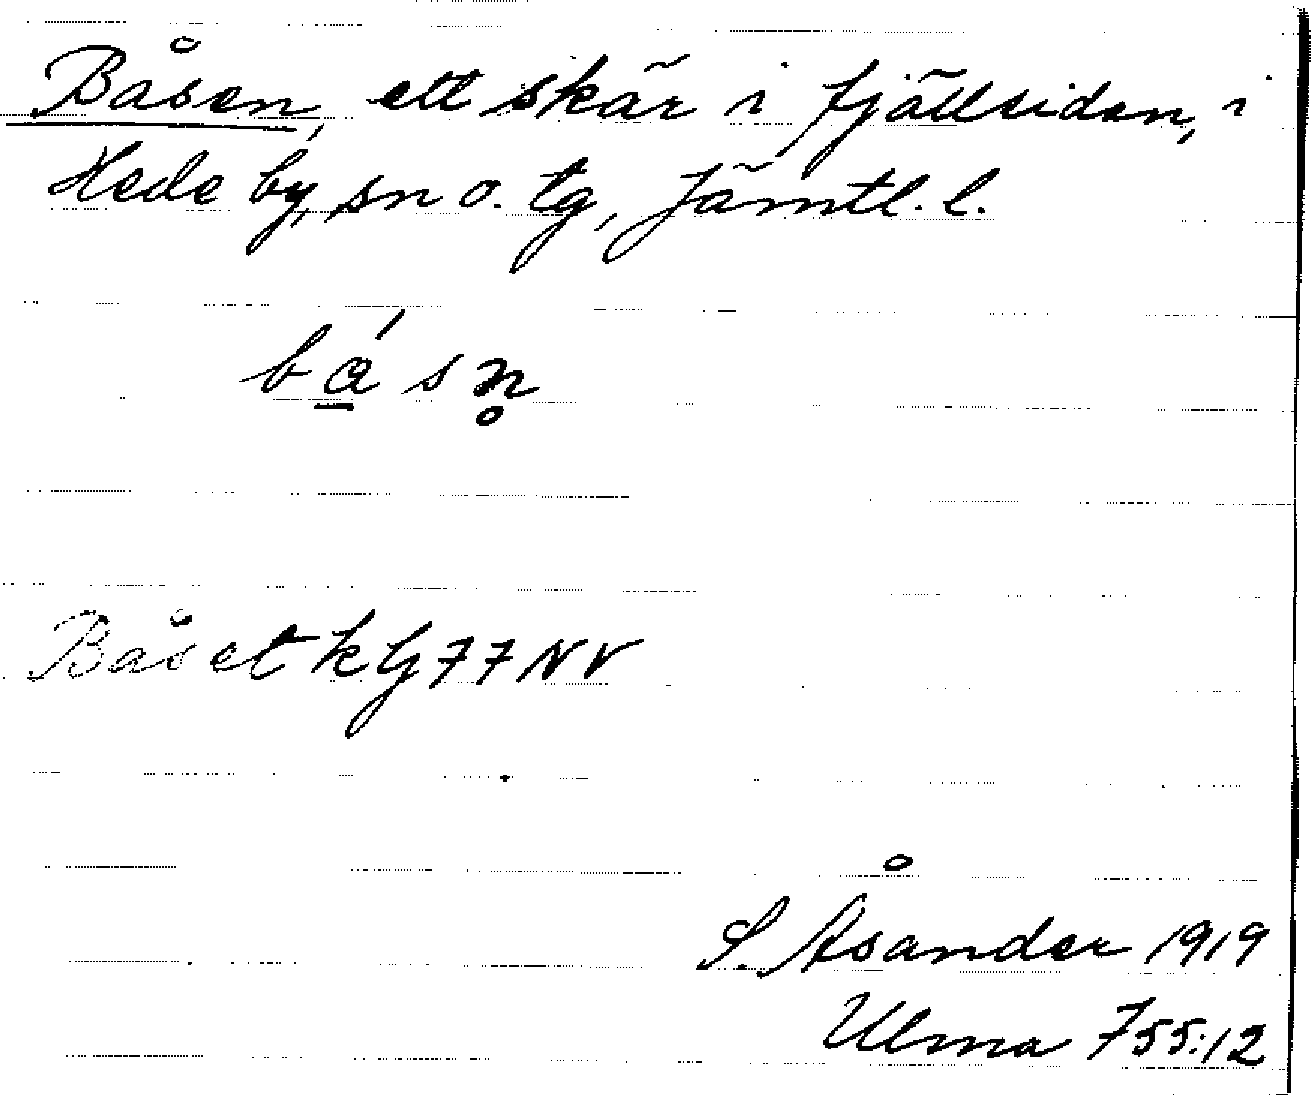 Båsen, ett skär i fjällsidan, i
Hede by, sn o. tg, Jämtl. l.
bá̱ s n̥
Båset k G 77 NV
S. Åsander 1919
Ulma 755:12